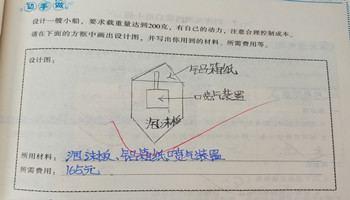 动手做
设计一艘小船，要求载重量达到200克，有自己的动力，注意合理控制成本。
请在下面的方框中画出设计图，并写出你用到的材料、所需费用等。
设计图：
铝箔纸
喷气装置
泡沫板
所用材料：泡沫板、铝箔纸、喷气装置
所需费用：165元